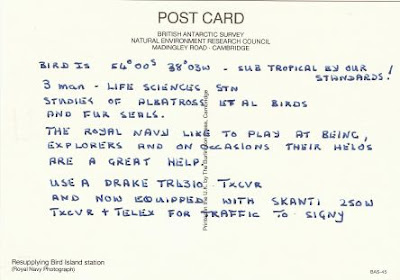 POST CARD
BRITISH ANTARCTIC SURVEY
NATURAL ENVIRONMENT RESEARCH COUNCIL
MADINGLEY ROAD · CAMBRIDGE
BIRD IS 54°00S 38°03W - SUB TROPICAL BY OUR
STANDARDS!
3 MAN - LIFE SCIENCES STN
STUDIES OF ALBATROSS ET AL BIRDS
AND FUR SEALS.
THE ROYAL NAVY LIKE TO PLAY AT BEING,
EXPLORERS AND ON OCCASIONS THEIR HELOS
ARE A GREAT HELP.
USE A DRAKE TR4310 TXCVR
AND NOW EQUIPPED WITH SKANTI 250W
TXCVR + TELEX FOR TRAFFIC TO SIGNY
Printed in the U.K. by The Burlington Press, Cambridge
Resupplying Bird Island station
(Royal Navy Photograph)
BAS-45